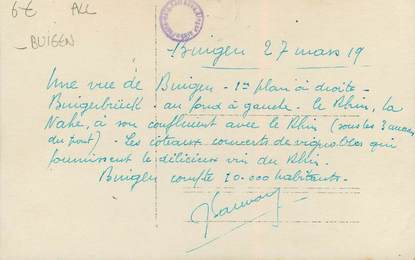 6€ ALL
_ BUIGEN
Buigen 27 mars 19
Une vue de Buigen - 1er plan à droite -
Buigerbrück - au fond à gauche - le Rhin, la
Nahe, à son confluent avec le Rhin (sous les 3 arches
du pont) - Les coteaux couverts de vignobles qui
fournissent le délicieux vin du Rhin.
Buigen compte 10.000 habitants.